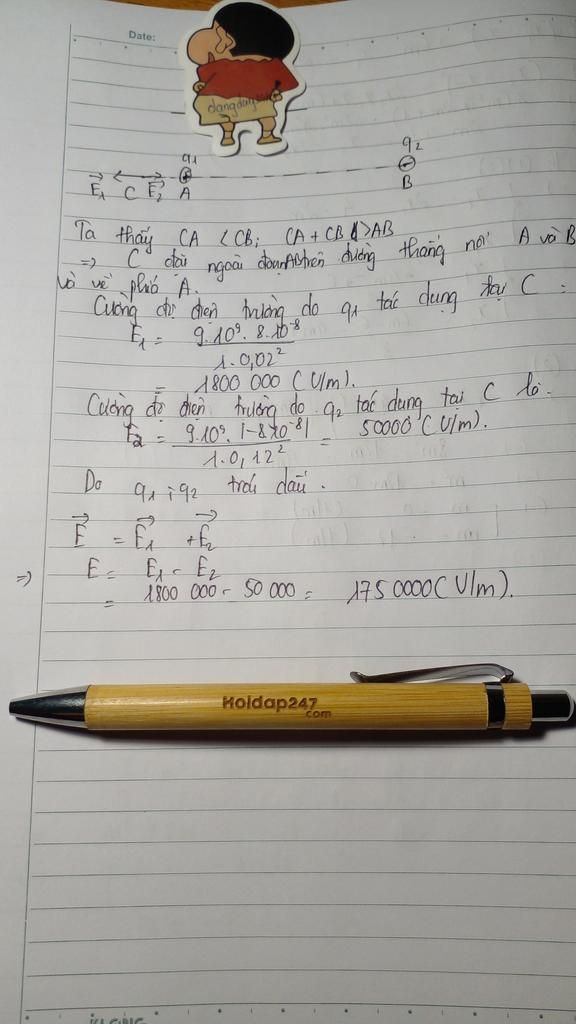 Date:
dangdung
q1 q2
E1 C E2 A B
Ta thấy CA < CB; CA + CB > AB
=> C nằm ngoài đoạn AB trên đường thẳng nối A và B
và về phía A.
Cường độ điện trường do q1 tác dụng tại C:
E1 = 9.10⁹. 8.10⁻⁸ / 1.0,02²
= 1800 000 (V/m).
Cường độ điện trường do q2 tác dụng tại C là:
E2 = 9.10⁹. |-8.10⁻⁸| / 1.0,12² = 50000 (V/m).
Do q1; q2 trái dấu.
E = E1 + E2
=> E = E1 - E2
= 1800 000 - 50 000 = 175 0000 (V/m).
Hoidap247
.com